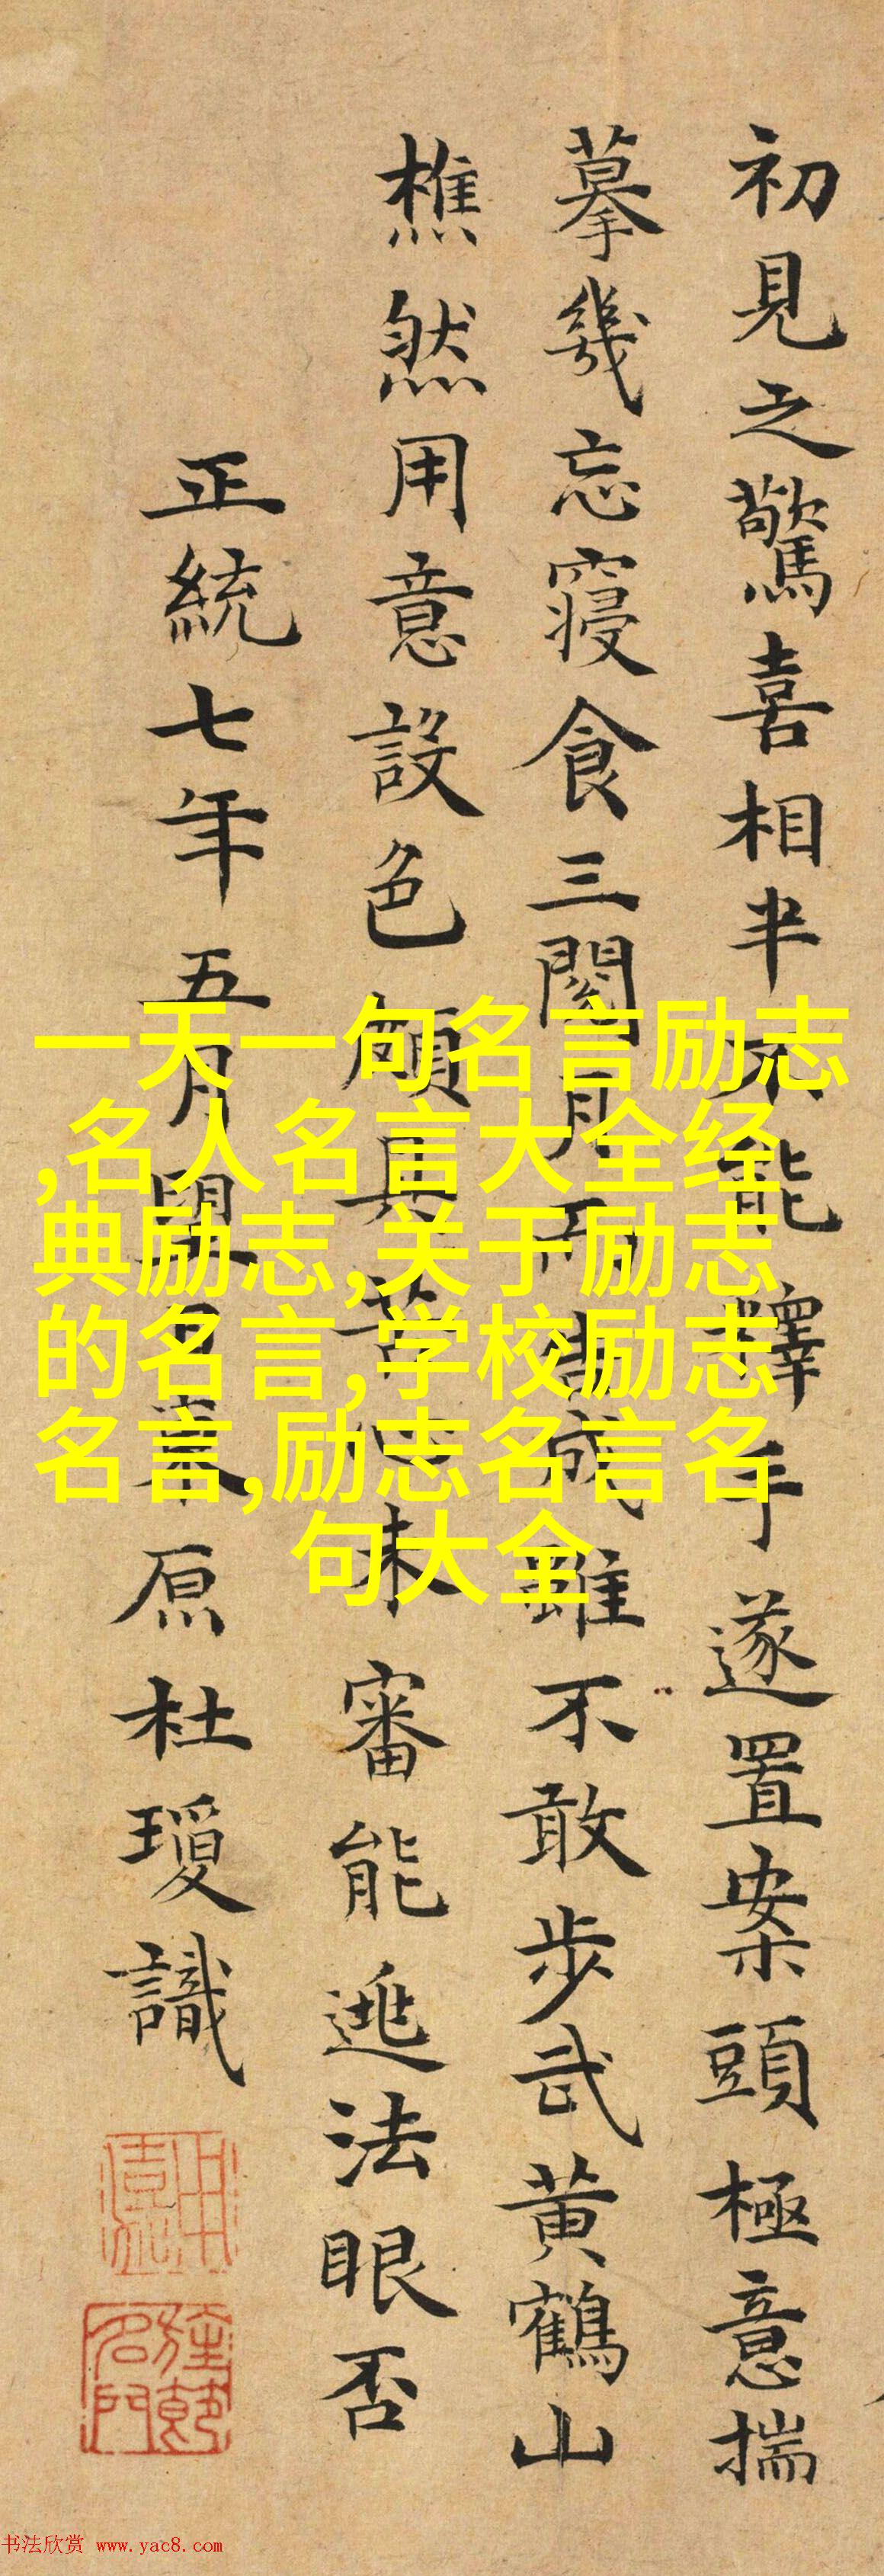 初見之驚喜相半不能釋手遂置案頭極意揣
摹幾忘寢食三閱月而成雖不敢步武黃鶴山
樵然用意設色頗具苦心未審能逃法眼否
正統七年五月東原杜瓊識
一天一句名言励志
,名人名言大全经
典励志,关于励志
的名言,学校励志
名言,励志名言名
句大全
书法欣赏 www.yac8.com